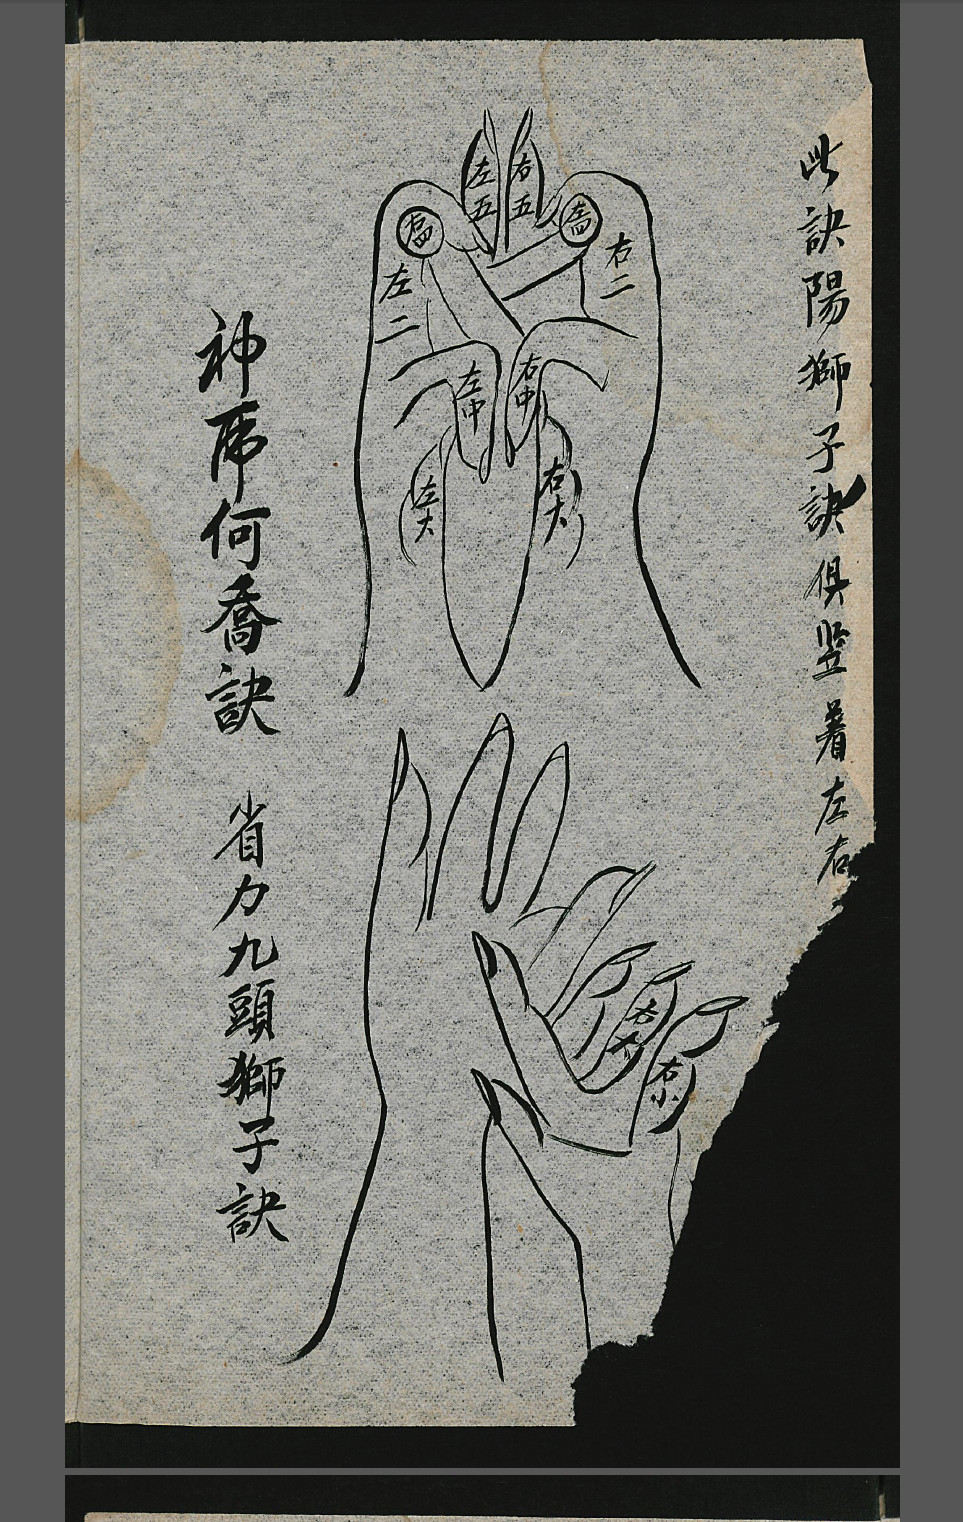 此訣陽獅子訣俱竖着左右
左五
右五
右四
左四
左二
右二
左中
右中
左大
右大
右大
右小
神霄何喬訣
省力九頭獅子訣